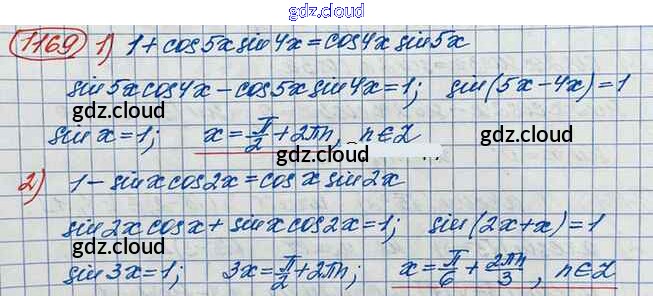 gdz.cloud
1169 1) 1 + cos5x sin4x = cos4x sin5x
sin5x cos4x - cos5x sin4x = 1; sin(5x-4x) = 1
gdz.cloud gdz.cloud
sin x = 1; x = π/2 + 2πn, n∈Z
gdz.cloud gdz.cloud
2) 1 - sin x cos2x = cos x sin2x
sin2x cos x + sin x cos2x = 1; sin(2x+x) = 1
gdz.cloud gdz.cloud
sin3x = 1; 3x = π/2 + 2πn; x = π/6 + 2πn/3, n∈Z
gdz.cloud